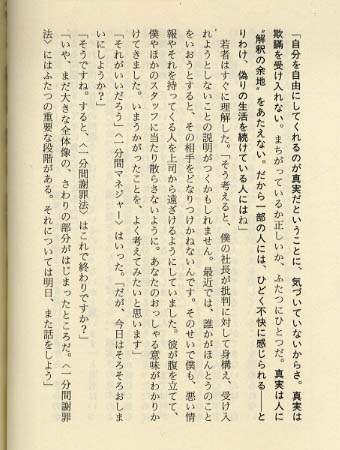 「自分を自由にしてくれるのが真実だということに、気づいていないからさ。真実は
欺瞞を受け入れない。まちがっているか正しいか、ふたつにひとつだ。真実は人に
〝解釈の余地〟をあたえない。だから一部の人には、ひどく不快に感じられる――と
りわけ、偽りの生活を続けている人にはね」
若者はすぐに理解した。「そう考えると、僕の社長が批判に対して身構え、受け入
れようとしないことの説明がつくかもしれません。最近では、誰かがほんとうのこと
をいおうとすると、その相手をどなりつけかねないんです。そのせいで僕も、悪い情
報やそれを持ってくる人を上司から遠ざけるようにしていました。彼が腹を立てて、
僕やほかのスタッフに当たり散らさないように。あなたのおっしゃる意味がわかりか
けてきました。いまうかがったことを、よく考えてみたいと思います」
「それがいいだろう」〈一分間マネジャー〉はいった。「だが、今日はそろそろおしま
いにしようか？」
「そうですね。すると、〈一分間謝罪法〉はこれで終わりですか？」
「いや、まだ大きな全体像の、さわりの部分がはじまったところだ。〈一分間謝罪
法〉にはふたつの重要な段階がある。それについては明日、また話をしよう」